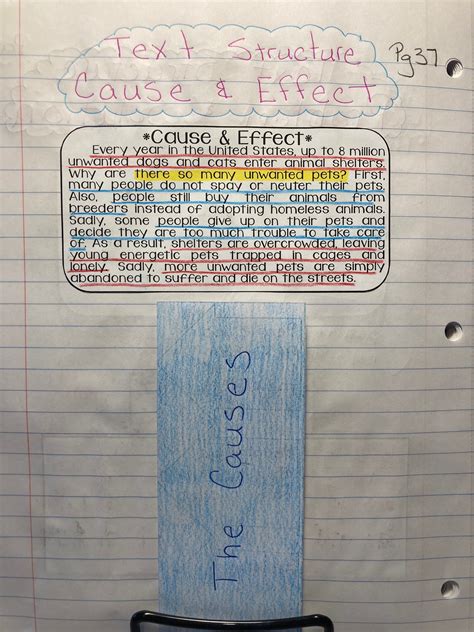 Text Structure
Pg37
Cause & Effect
*Cause & Effect*
Every year in the United States, up to 8 million
unwanted dogs and cats enter animal shelters.
Why are there so many unwanted pets? First,
many people do not spay or neuter their pets.
Also, people still buy their animals from
breeders instead of adopting homeless animals.
Sadly, some people give up on their pets and
decide they are too much trouble to take care
of. As a result, shelters are overcrowded, leaving
young energetic pets trapped in cages and
lonely. Sadly, more unwanted pets are simply
abandoned to suffer and die on the streets.
The Causes